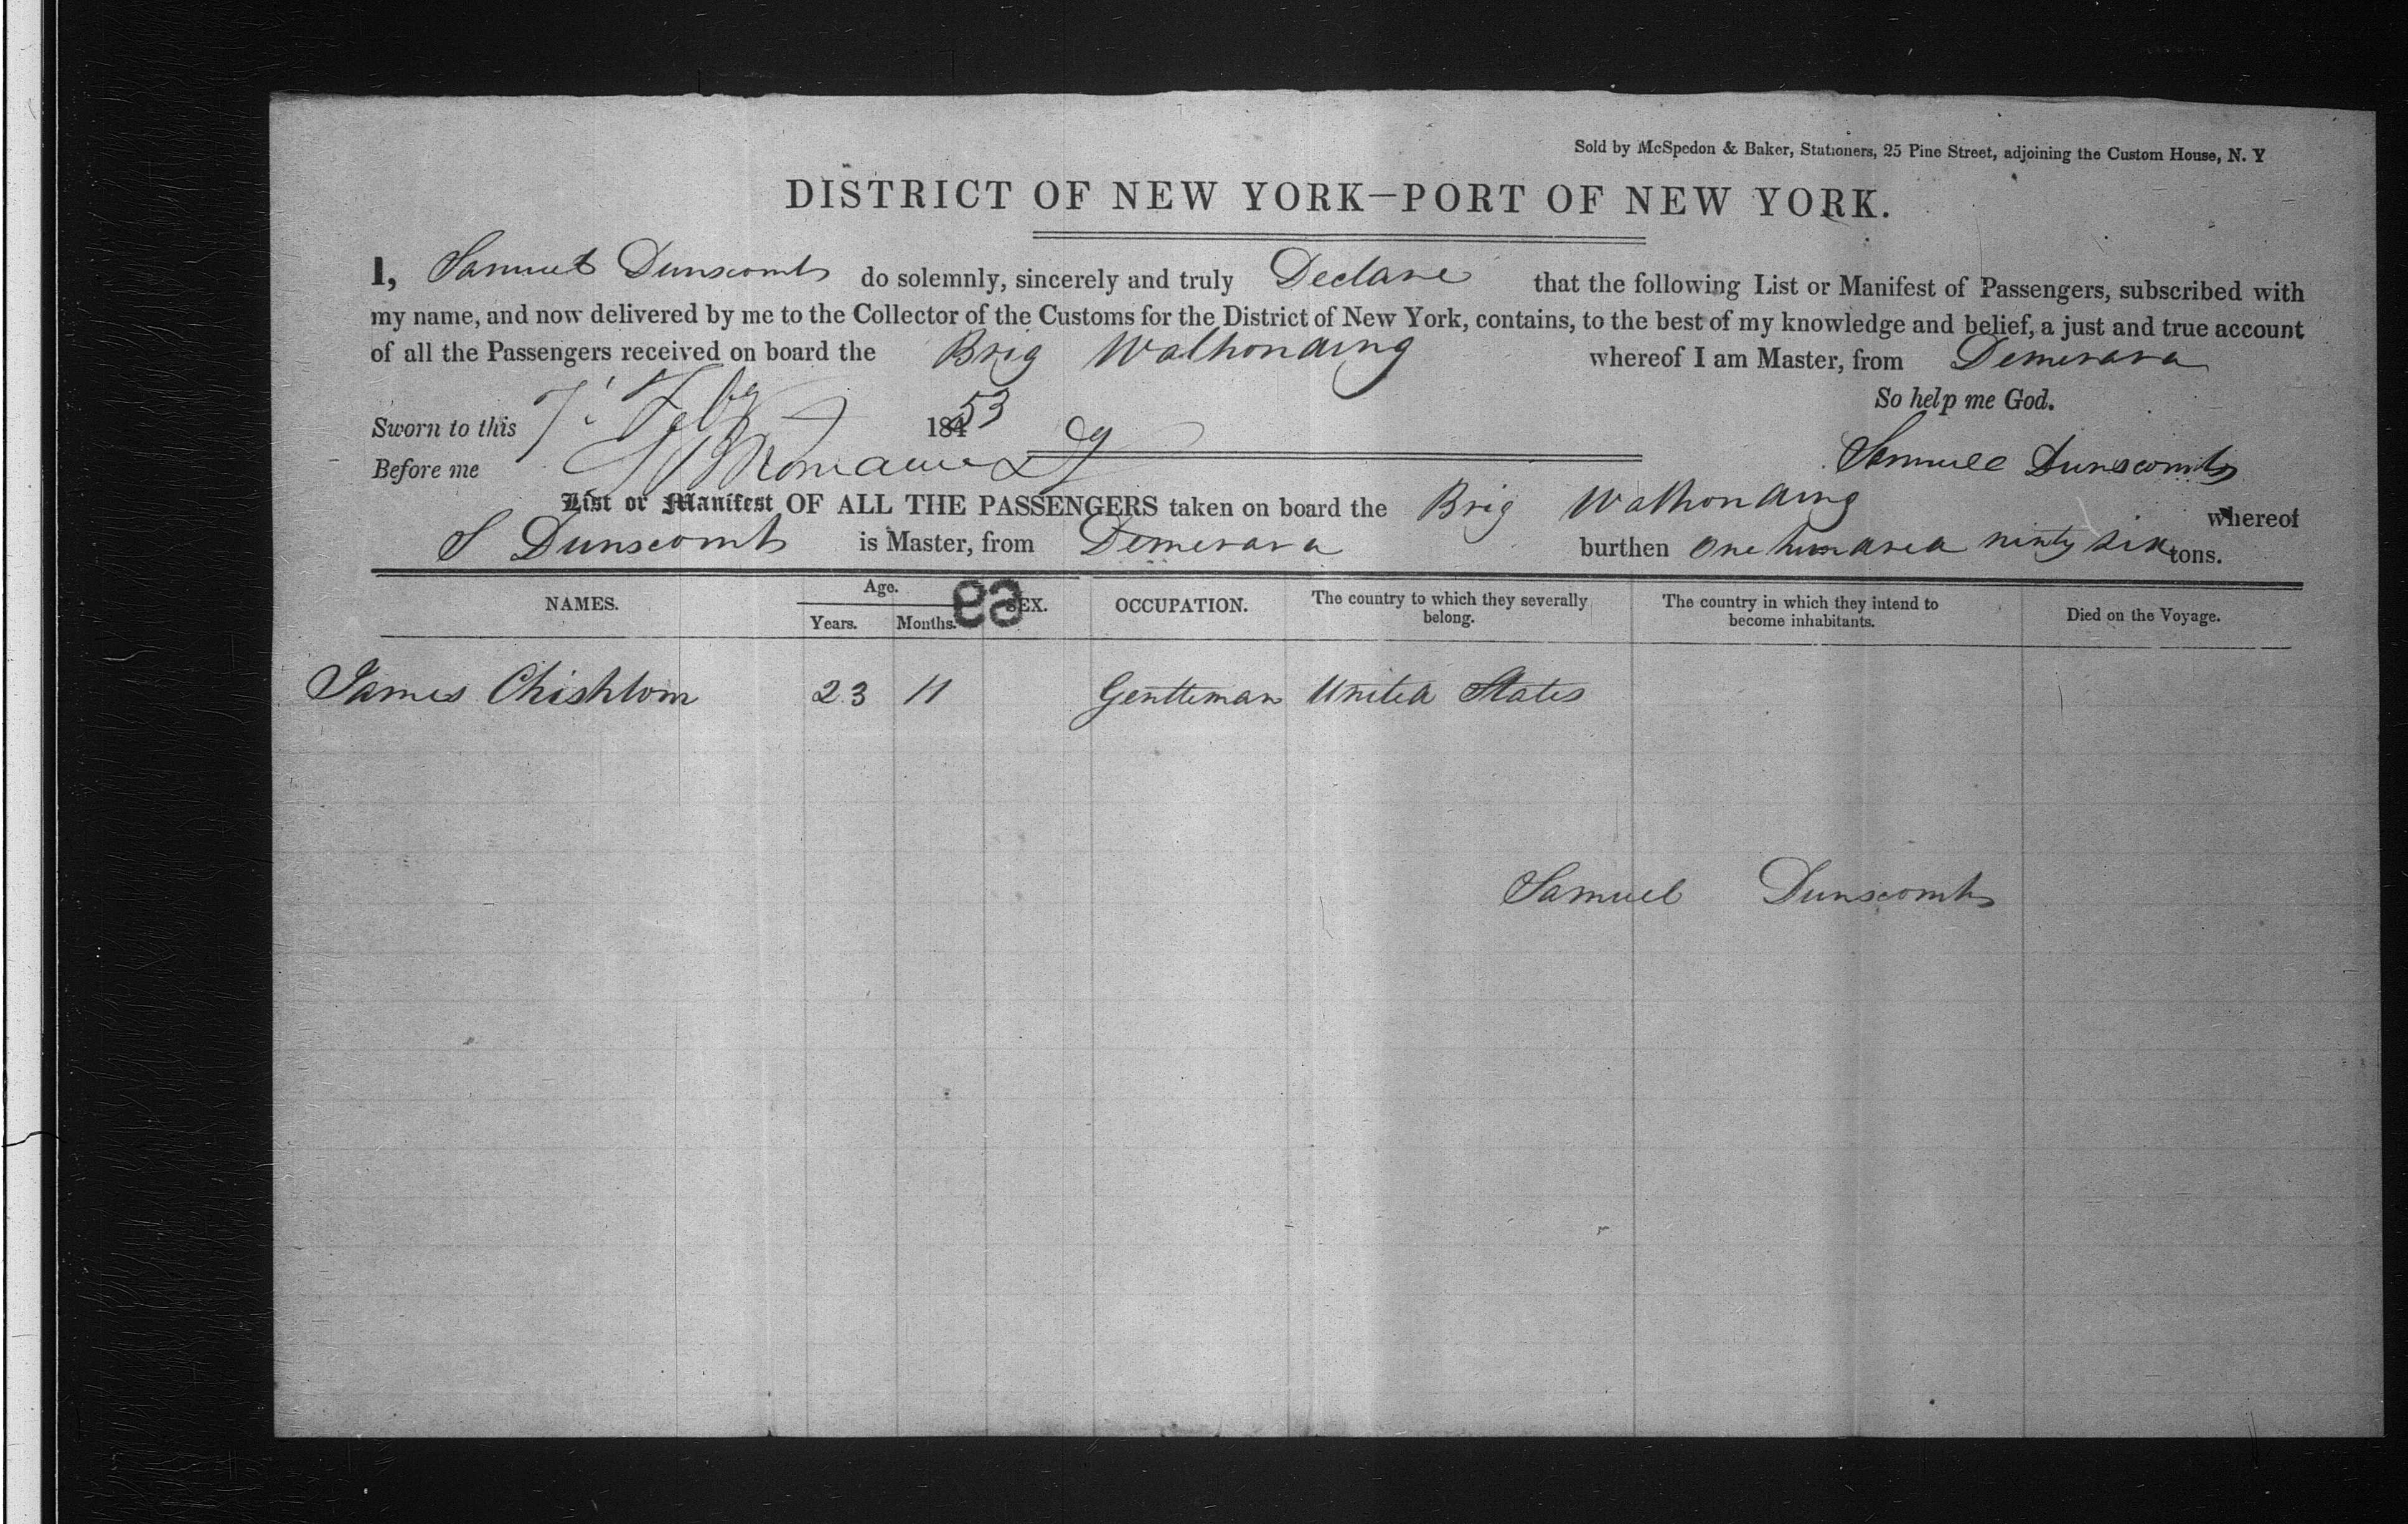 Sold by McSpedon & Baker, Stationers, 25 Pine Street, adjoining the Custom House, N. Y
DISTRICT OF NEW YORK—PORT OF NEW YORK.
I, Samuel Dunscomb do solemnly, sincerely and truly Declare that the following List or Manifest of Passengers, subscribed with
my name, and now delivered by me to the Collector of the Customs for the District of New York, contains, to the best of my knowledge and belief, a just and true account
of all the Passengers received on board the Brig Walhonding whereof I am Master, from Demerara
So help me God.
Sworn to this 7 Feby 1853
Samuel Dunscomb
Before me
List or Manifest OF ALL THE PASSENGERS taken on board the Brig Walhonding whereof
S Dunscomb is Master, from Demerara burthen One hundred ninty six tons.
NAMES. Age. Years. Months. SEX. OCCUPATION. The country to which they severally belong. The country in which they intend to become inhabitants. Died on the Voyage.
69
James Chishlom 23 11 Gentleman United States
Samuel Dunscomb